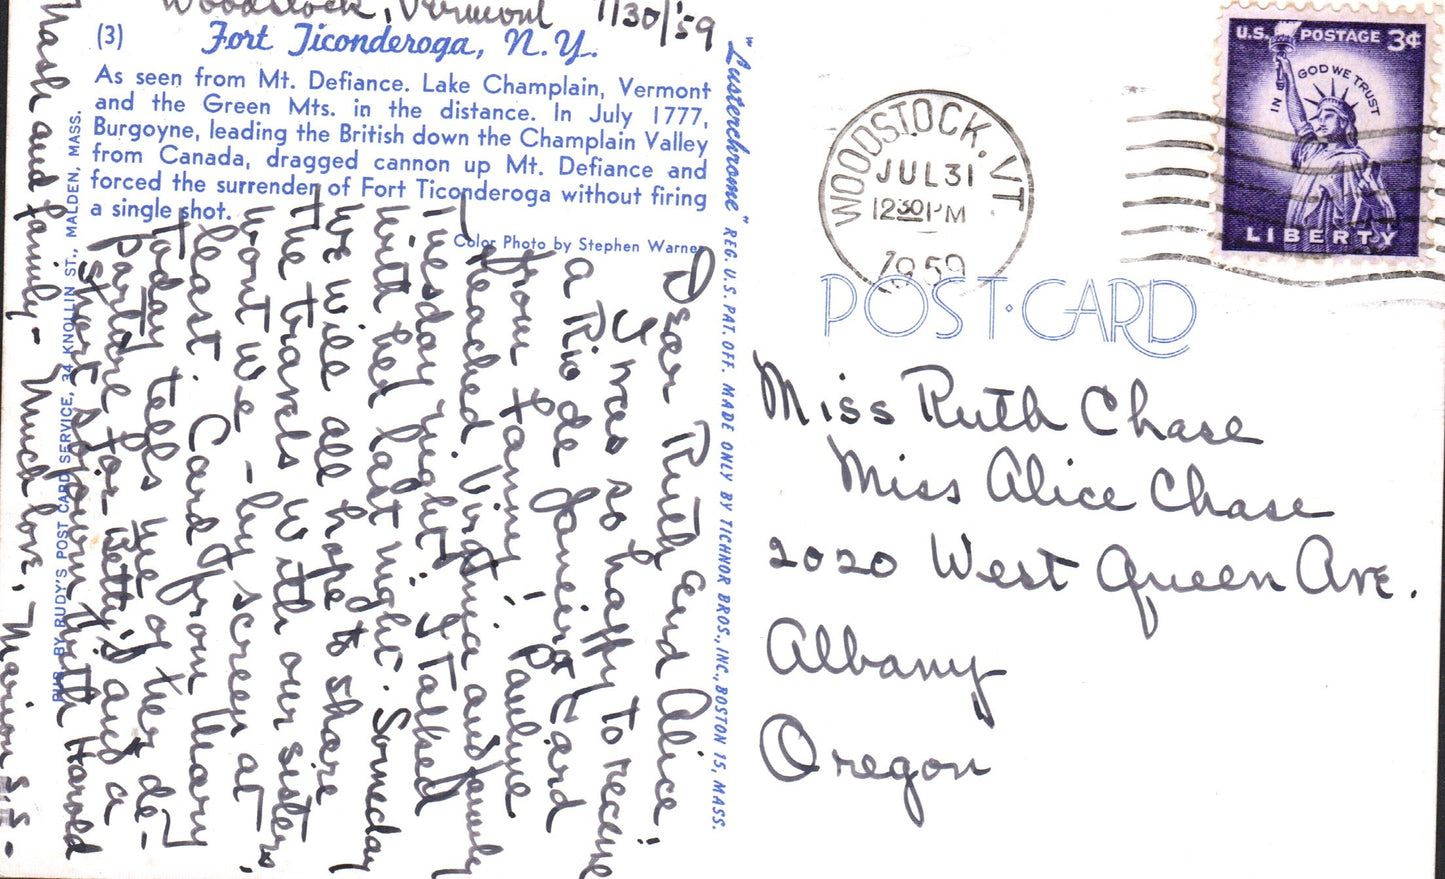 Woodstock, Vermont 7/30/'59
(3) Fort Ticonderoga, N.Y.
As seen from Mt. Defiance. Lake Champlain, Vermont
and the Green Mts. in the distance. In July 1777,
Burgoyne, leading the British down the Champlain Valley
from Canada, dragged cannon up Mt. Defiance and
forced the surrender of Fort Ticonderoga without firing
a single shot.
Color Photo by Stephen Warner
PUB. BY RUDY'S POST CARD SERVICE, 34 KNOLLIN ST., MALDEN, MASS.
"Lusterchrome" REG. U.S. PAT. OFF. MADE ONLY BY TICHNOR BROS., INC., BOSTON 15, MASS.
Dear Ruth and Alice;
I was so happy to receive
a Rio de Janeiro card
from Fanny! Pauline
reached Virginia and family
Tuesday night. I talked
with her last night. Someday
we will all hope to share
the travels with our sisters,
wont we - by screen at
least. Card from Mary
today tells me of her de-
parture for Betty's and a
short sojourn with Harold
Nash and family - Much love, Marion S.S. -
U.S. POSTAGE 3¢
IN GOD WE TRUST
LIBERTY
WOODSTOCK, VT.
JUL 31
12 30 PM
1959
POST CARD
Miss Ruth Chase
Miss Alice Chase
2020 West Queen Ave.
Albany
Oregon